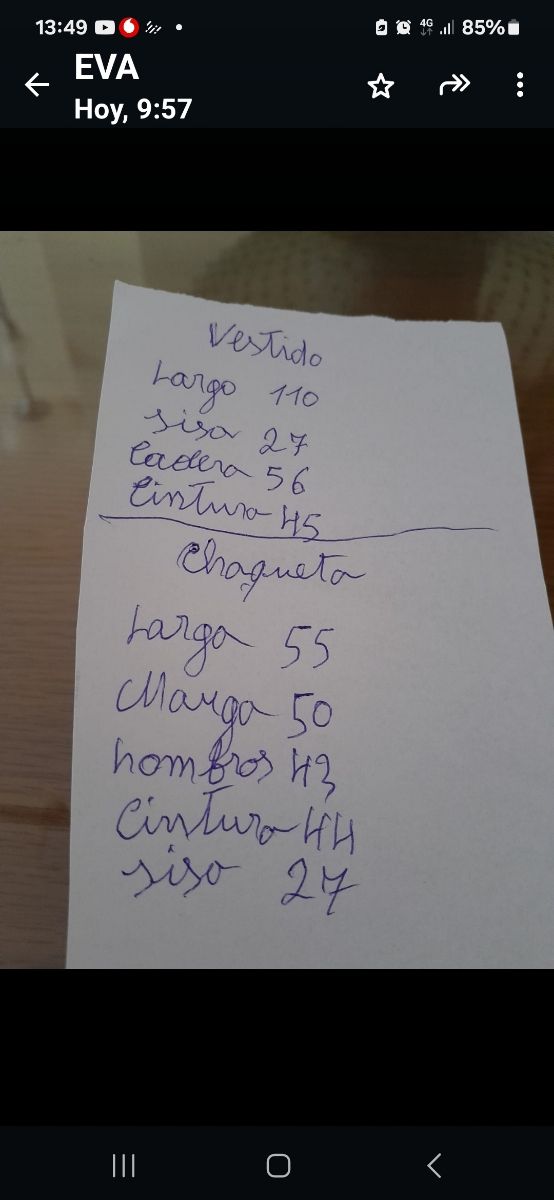 13:49 4G 85%
EVA
Hoy, 9:57
Vestido
Largo 110
sisa 27
Cadera 56
Cintura 45
Chaqueta
Larga 55
Manga 50
hombros 43
Cintura 44
sisa 27